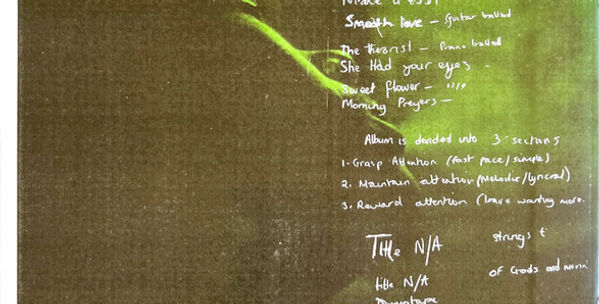 Smooth love – Guitar ballad
The theorist – Piano ballad
She Had your eyes -
Sweet flower –
Morning Preyers –
Album is devided into 3 sections
1. Grasp Attention (fast pace/simple)
2. Maintain attention (Melodic/Lyrical)
3. Reward attention (leave wanting more.
Title N/A
strings &
title N/A
of Gods and